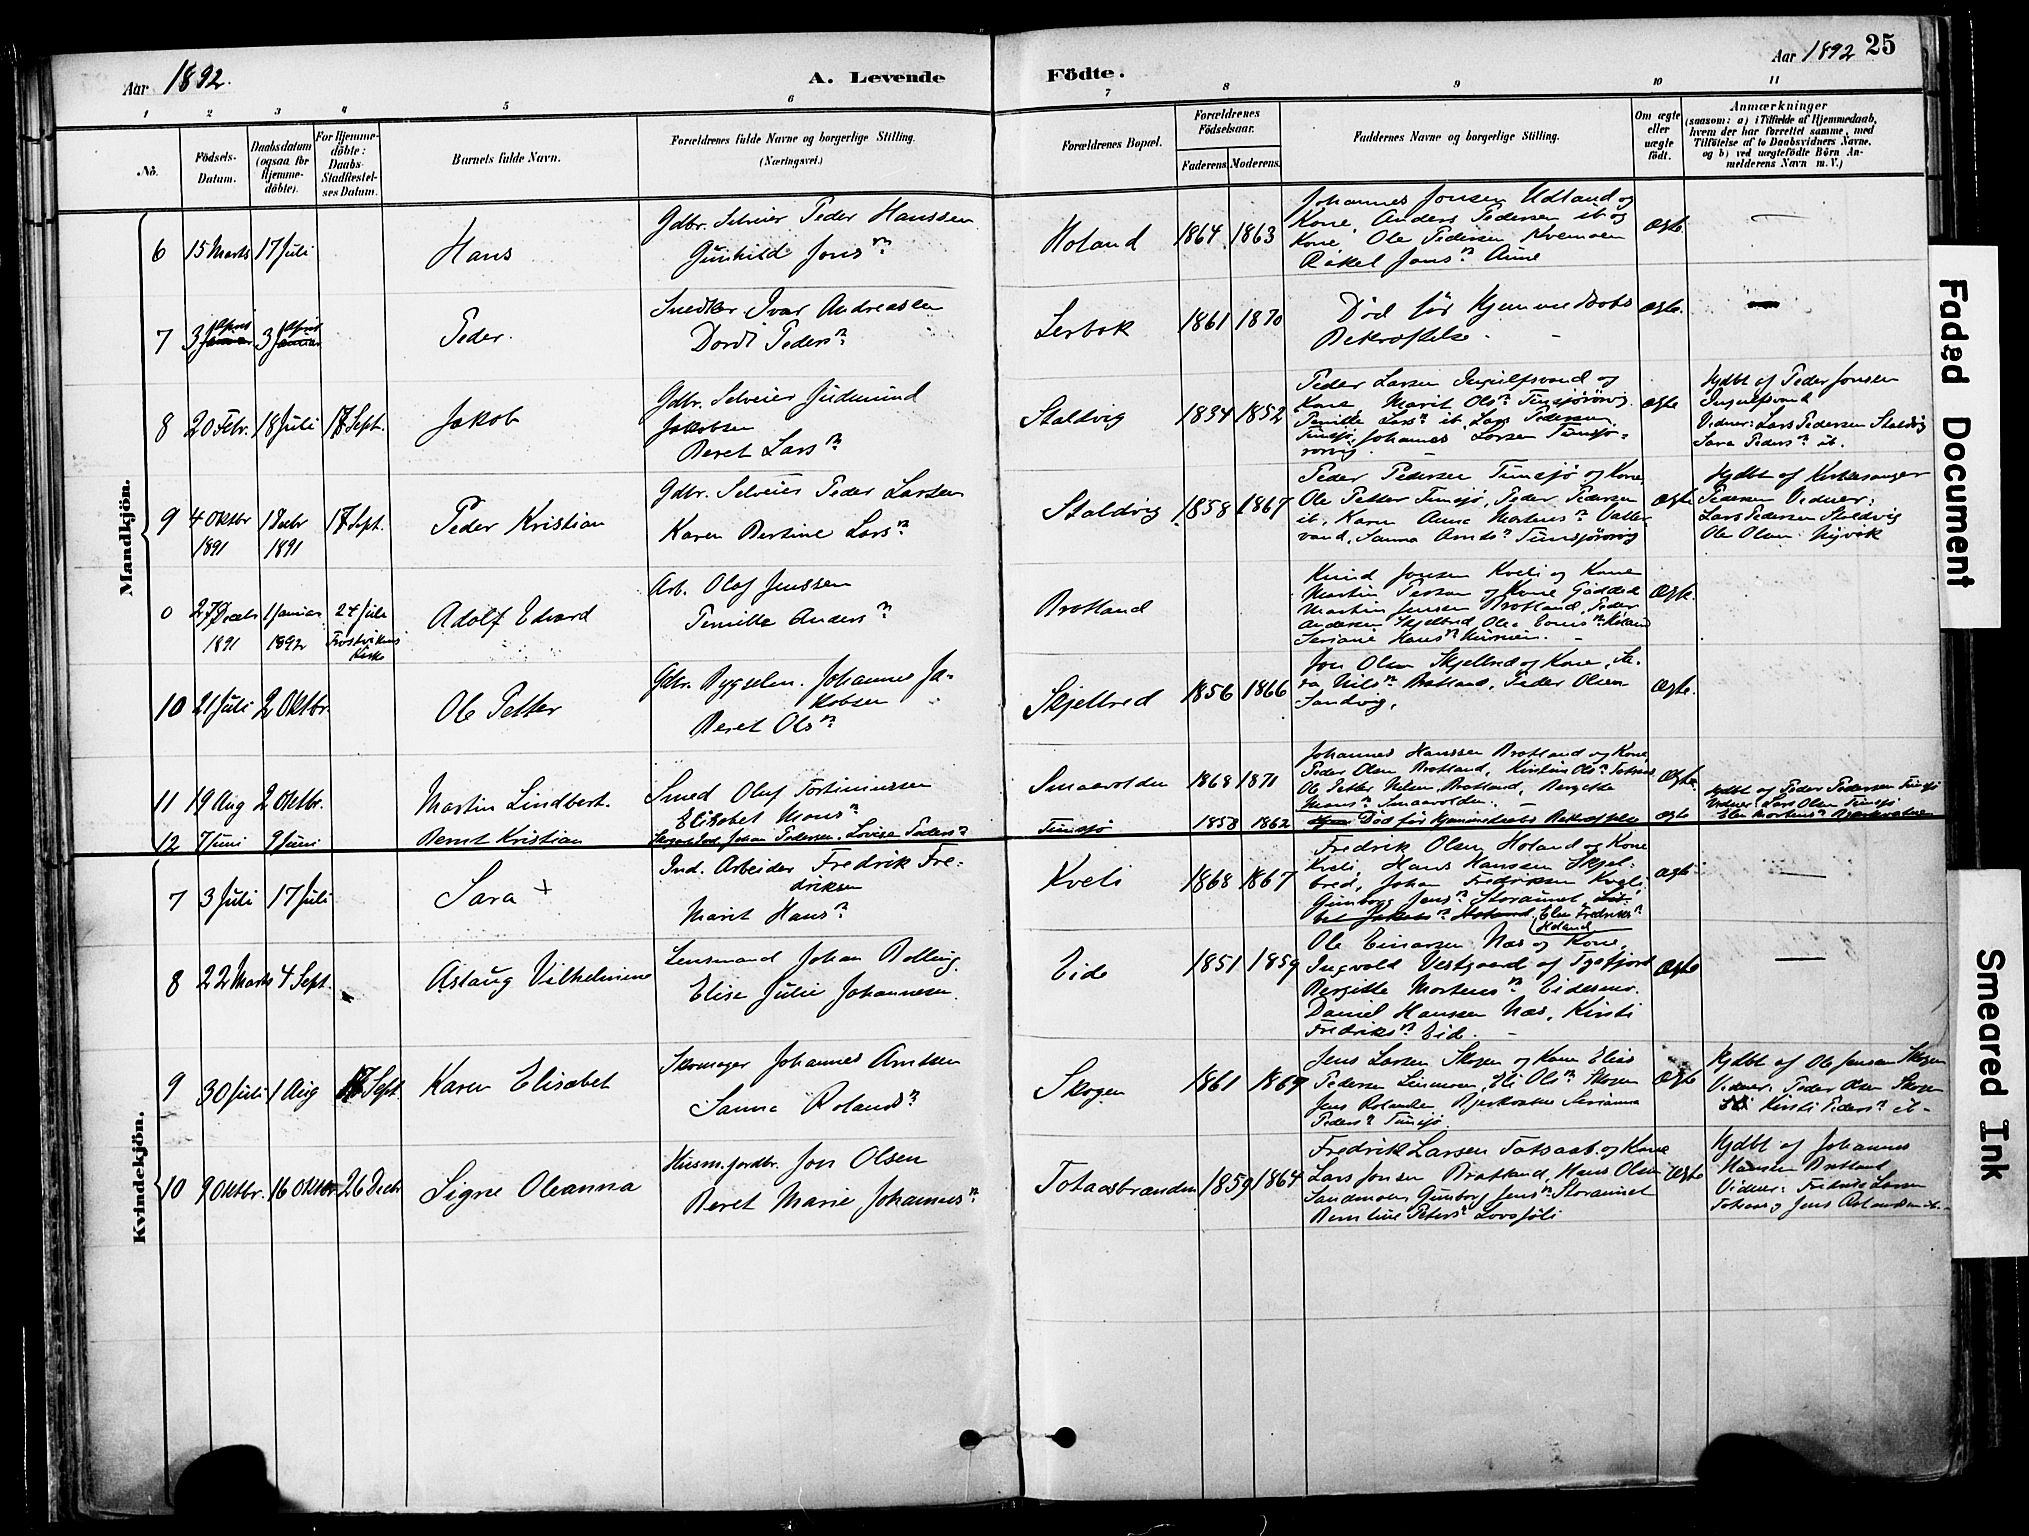 Aar 1892.
A. Levende
Födte.
Aar 1892
25
1 2 3 4 5 6 7 8 9 10 11
No.
Födsels-
Datum.
Daabsdatum
(ogsaa for
Hjemme-
döbte).
For Hjemme-
döbte:
Daabs-
Stadfæstel-
ses Datum.
Barnets fulde Navn.
Forældrenes fulde Navne og borgerlige Stilling.
(Næringsvei.)
Forældrenes Bopæl.
Forældrenes
Födselsaar.
Faderens.
Moderens.
Faddernes Navne og borgerlige Stilling.
Om ægte
eller
uægte
födt.
Anmærkninger
(saasom: a) i Tilfælde af Hjemmedaab,
hvem der har forrettet samme, med
Tilföielse af to Daabsvidners Navne,
og b) ved uægtefödte Börn An-
melderens Navn m. V.)
Mandkjön.
6 15 Marts 17 Juli
Hans
Gdbr. Selveier Peder Hanssen
Gunhild Jons n
Holand
1864 1863
Johannes Jonsen Udland og
Kone, Anders Pedersen ib og
Kone, Ole Pedersen Kvemoen
Rakel Jons n Aune
Ægte
7 3 April 3 April
Peder.
Snedker Ivar Andreassen
Dordi Peders n
Lerbak
1861 1870
Död för Hjemmedaabs
Bekræftelse.
Ægte.
8 20 Febr. 18 Juli 18 Sept.
Jakob
Gdbr. Selveier Gudmund
Jakobsen
Beret Lars n
Staldvig
1834 1852
Peder Larsen Ingulfsvand og
Kone Marit Ols n Tunsjörörvig
Pernille Lars n ib. Lars Pedersen
Tunsjö, Johannes Larsen Tunsjö-
rörvig.
Ægte
Hjdbt af Peder Jonsen
Ingulfsvand
Vidner: Lars Pedersen Staldvig
Sara Peders n ib.
9 4 Oktbr 1 Decbr 18 Sept.
1891 1891
Peder Kristian
Gdbr. Selveier Peder Larsen
Karen Bertine Lars n
Staldvig
1858 1867
Peder Pedersen Tunsjö og Kone
Ole Petter Tunsjö, Peder Pedersen
ib, Karen Anna Mortens n Vatter
vand, Sanna Arnts n Tunsjörörvig
Ægte
Hjdbt af Kirkesanger
Pedersen Vidner:
Lars Pedersen Staldvig
Ole Olsen Nyvik
0 27 Decbr 1 Januar 24 Juli
1891 1892 Frostvikens
Kirke
Adolf Edvard
Arb. Olof Jenssen
Pernille Anders n
Brotland
Knud Jonsen Kveli og Kone
Martin Persson og Kone Gäddede
Martin Jensen Brotland, Peder
Andersen Skjelbred
Ægte.
10 21 Juli 2 Oktbr.
Ole Petter
Gdbr. Bygselm. Johannes Ja-
kobsen
Beret Ols n
Skjelbred
1856 1866
Jon Olsen Skjelbred og Kone, Sa-
ra Nils n Brotland, Peder Olsen
Sandvig.
Ægte.
11 19 Aug 2 Oktbr.
Martin Lindbert.
Smed Oluf Tortinussen
Elisabet Mons n
Smaavolden
1868 1871
Johannes Hanssen Brotland og Kone
Peder Olsen Brotland, Kirstine Ols n Totsaas
Ole Petter Nilsen Brotland, Bergitte
Mons n Smaavolden.
Ægte.
12 7 Juni 9 Juni
Bernt Kristian
Johan Pedersen. Lovise Peders n
Tunsjö
1858 1862
Död för Hjemmedaabs Bekræftelse
ægte
Hjdbt af Peder Pedersen Tunsjö
Vidner: Lars Olsen Tunsjö
Elen Mortens n Bjørkvatnet
Kvindekjön.
7 3 Juli 17 Juli
Sara +
Ind. Arbeider Fredrik Fre-
driksen
Marit Hans n
Kveli
1868 1867
Fredrik Olsen Holand og Kone
Kveli, Hans Hanssen Skjel-
bred, Johan Fredriksen Kveli,
Gunborg Jens n Storaunet,
Elen Fredriks n
Holand
ægte
8 22 Marts 4 Sept.
Aslaug Vilhelmine
Lensmand Johan Bolling
Elise Julie Johannesen.
Eide
1851 1859
Ole Einarsen Næs og Kone,
Ingvald Vestgaard af Fosfjord
Bergitte Mortens n Eidesmo.
Daniel Hanssen Næs, Kirsti
Fredriks n Eid.
Ægte
9 30 Juli 1 Aug 18 Sept
Karen Elisabet
Skomager Johannes Arntsen
Sanna Rolands n
Skogen
1861 1869
Jens Larsen Skogen og Kone Elias
Pedersen Linmoen, Eli Ols n Skogen
Jens Rolandsen Bjørkvatnet Serianna
Peders n Tunsjö
Ægte
Hjdbt af Ole Jensen Skogen
Vidner: Peder Olsen Skogen
Kirsti Peders n ib.
10 9 Oktbr. 16 Oktbr 26 Decbr
Signe Oleanna
Husm. jordbr. Jon Olsen
Beret Marie Johannes n
Totaasbranden
1859 1864
Fredrik Larsen Totsaas og Kone
Lars Jonsen Brotland, Hans Olsen
Sandmoen Gunborg Jens n Storaunet
Berntine Peters n Lovsjöli
Ægte
Hjdbt af Johannes
Hansen Brotland
Vidner: Fredrik Larsen
Totsaas, Jens Rolandsen ib.
Faded Document
Smeared Ink